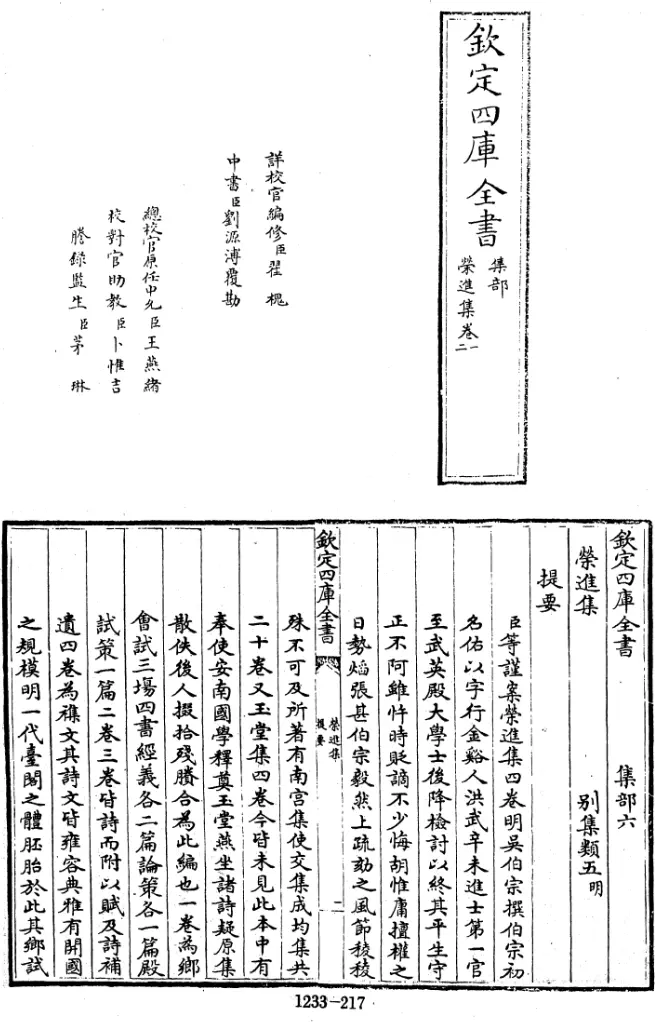 欽定四庫全書
集部
榮進集卷一
二
詳校官編修臣翟槐
中書臣劉源溥覆勘
總校官原任中允臣王燕緒
校對官助教臣卜惟吉
謄錄監生臣茅琳
欽定四庫全書 集部六
榮進集 别集類五明
提要
臣等謹案榮進集四卷明吳伯宗撰伯宗初
名佑以字行金谿人洪武辛未進士第一官
至武英殿大學士後降檢討以終其平生守
正不阿雖忤時貶謫不少悔胡惟庸擅權之
日勢焰張甚伯宗毅然上疏劾之風節稜稜
欽定四庫全書
榮進集
提要
二
殊不可及所著有南宫集使交集成均集共
二十卷又玉堂集四卷今皆未見此本中有
奉使安南國學釋奠玉堂燕坐諸詩疑原集
散佚後人掇拾殘賸合為此編也一卷為鄉
會試三場四書經義各二篇論策各一篇殿
試策一篇二卷三卷皆詩而附以賦及詩補
遺四卷為襍文其詩文皆雍容典雅有開國
之規模明一代臺閣之體胚胎於此其鄉試
1233-217